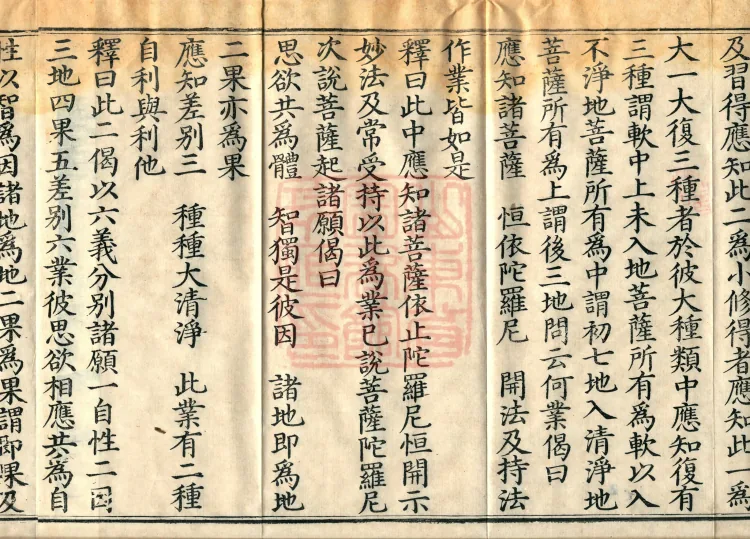 及習得應知此二為小修得者應知此一為
大一大復三種者於彼大種類中應知復有
三種謂軟中上未入地菩薩所有為軟以入
不淨地菩薩所有為中謂初七地入清淨地
菩薩所有為上謂後三地問云何業偈曰
應知諸菩薩 恒依陀羅尼 開法及持法
作業皆如是
釋曰此中應知諸菩薩依止陀羅尼恒開示
妙法及常受持以此為業已說菩薩陀羅尼
次說菩薩起諸願偈曰
思欲共為體 智獨是彼因 諸地即為地
二果亦為果
應知差別三 種種大清淨 此業有二種
自利與利他
釋曰此二偈以六義分別諸願一自性二因
三地四果五差別六業彼思欲相應共為自
性以智為因諸地為地二果為果謂即果及